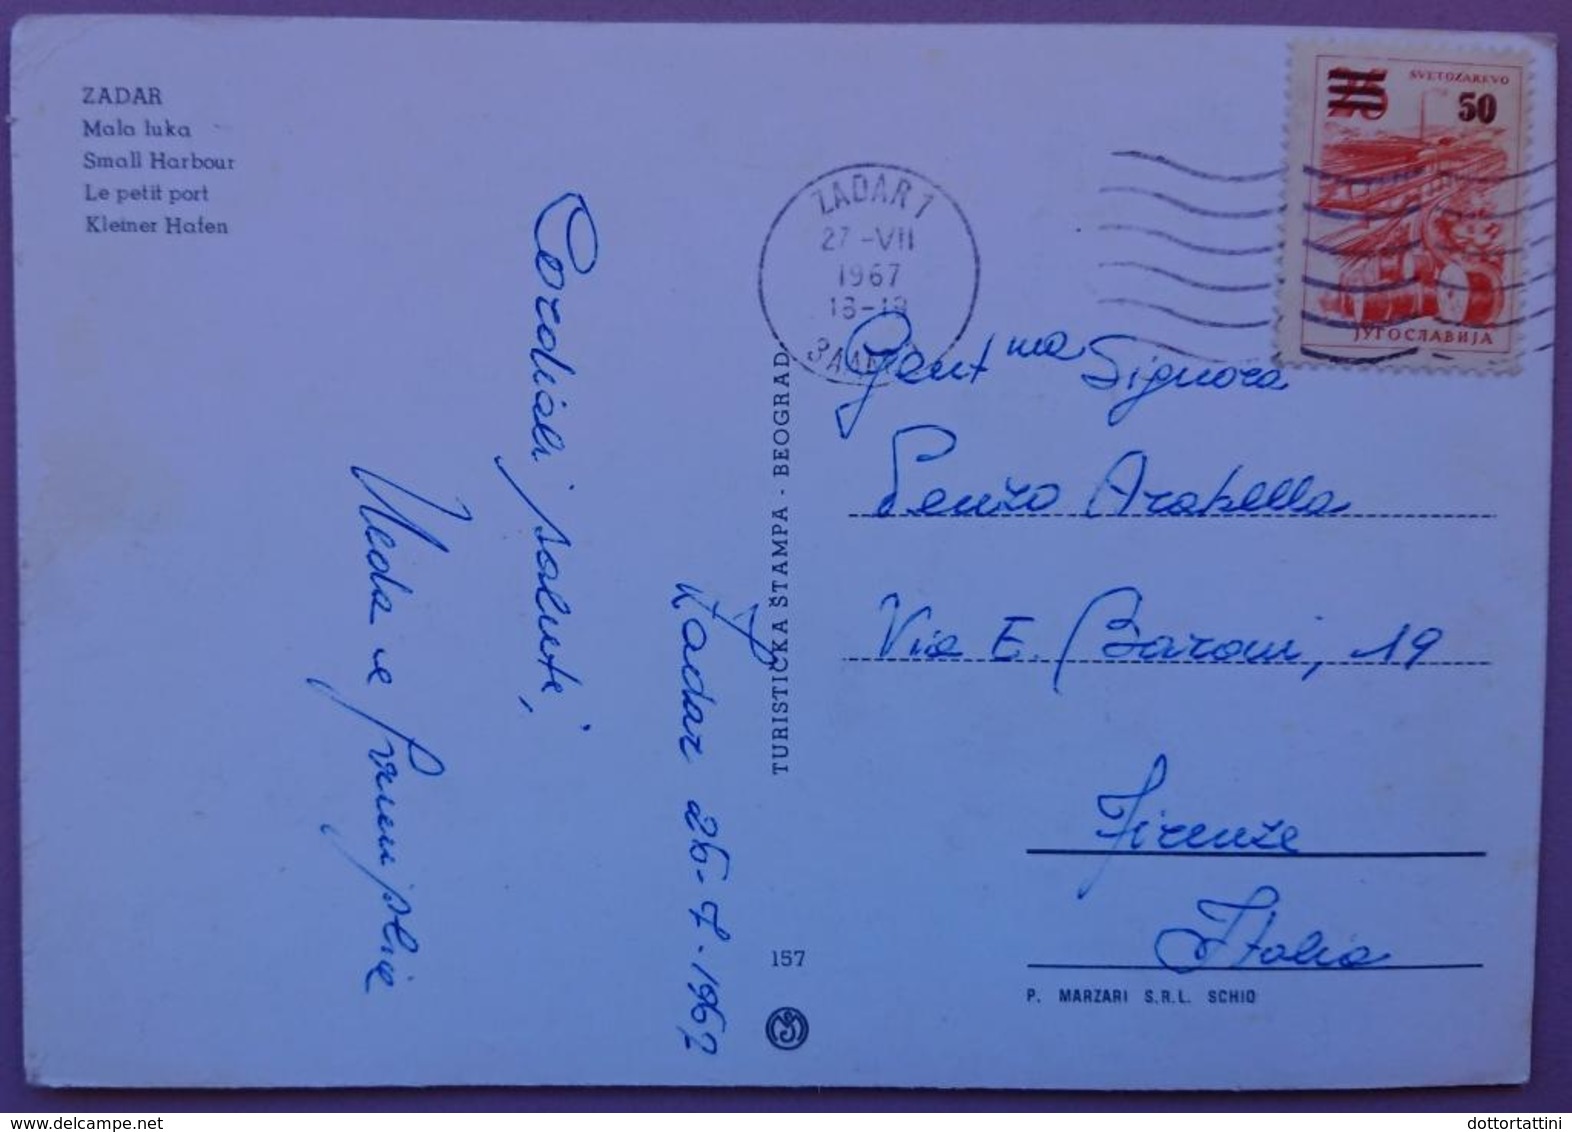 ZADAR
Mala luka
Small Harbour
Le petit port
Kleiner Hafen
SVETOZAREVO
50
ЈУГОСЛАВИЈА
ZADAR 1
27-VII
1967
18-19
Zadar 26-7-1967
Cordiali saluti,
Neda e famiglia
TURISTIČKA ŠTAMPA - BEOGRAD
157
Gent ma Signora
Penzo Arabella
Via E. Baroni, 19
Firenze
Italia
P. MARZARI S.R.L. SCHIO
dottortattini